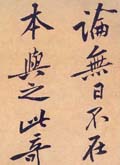 論無日不在
本與之此哥